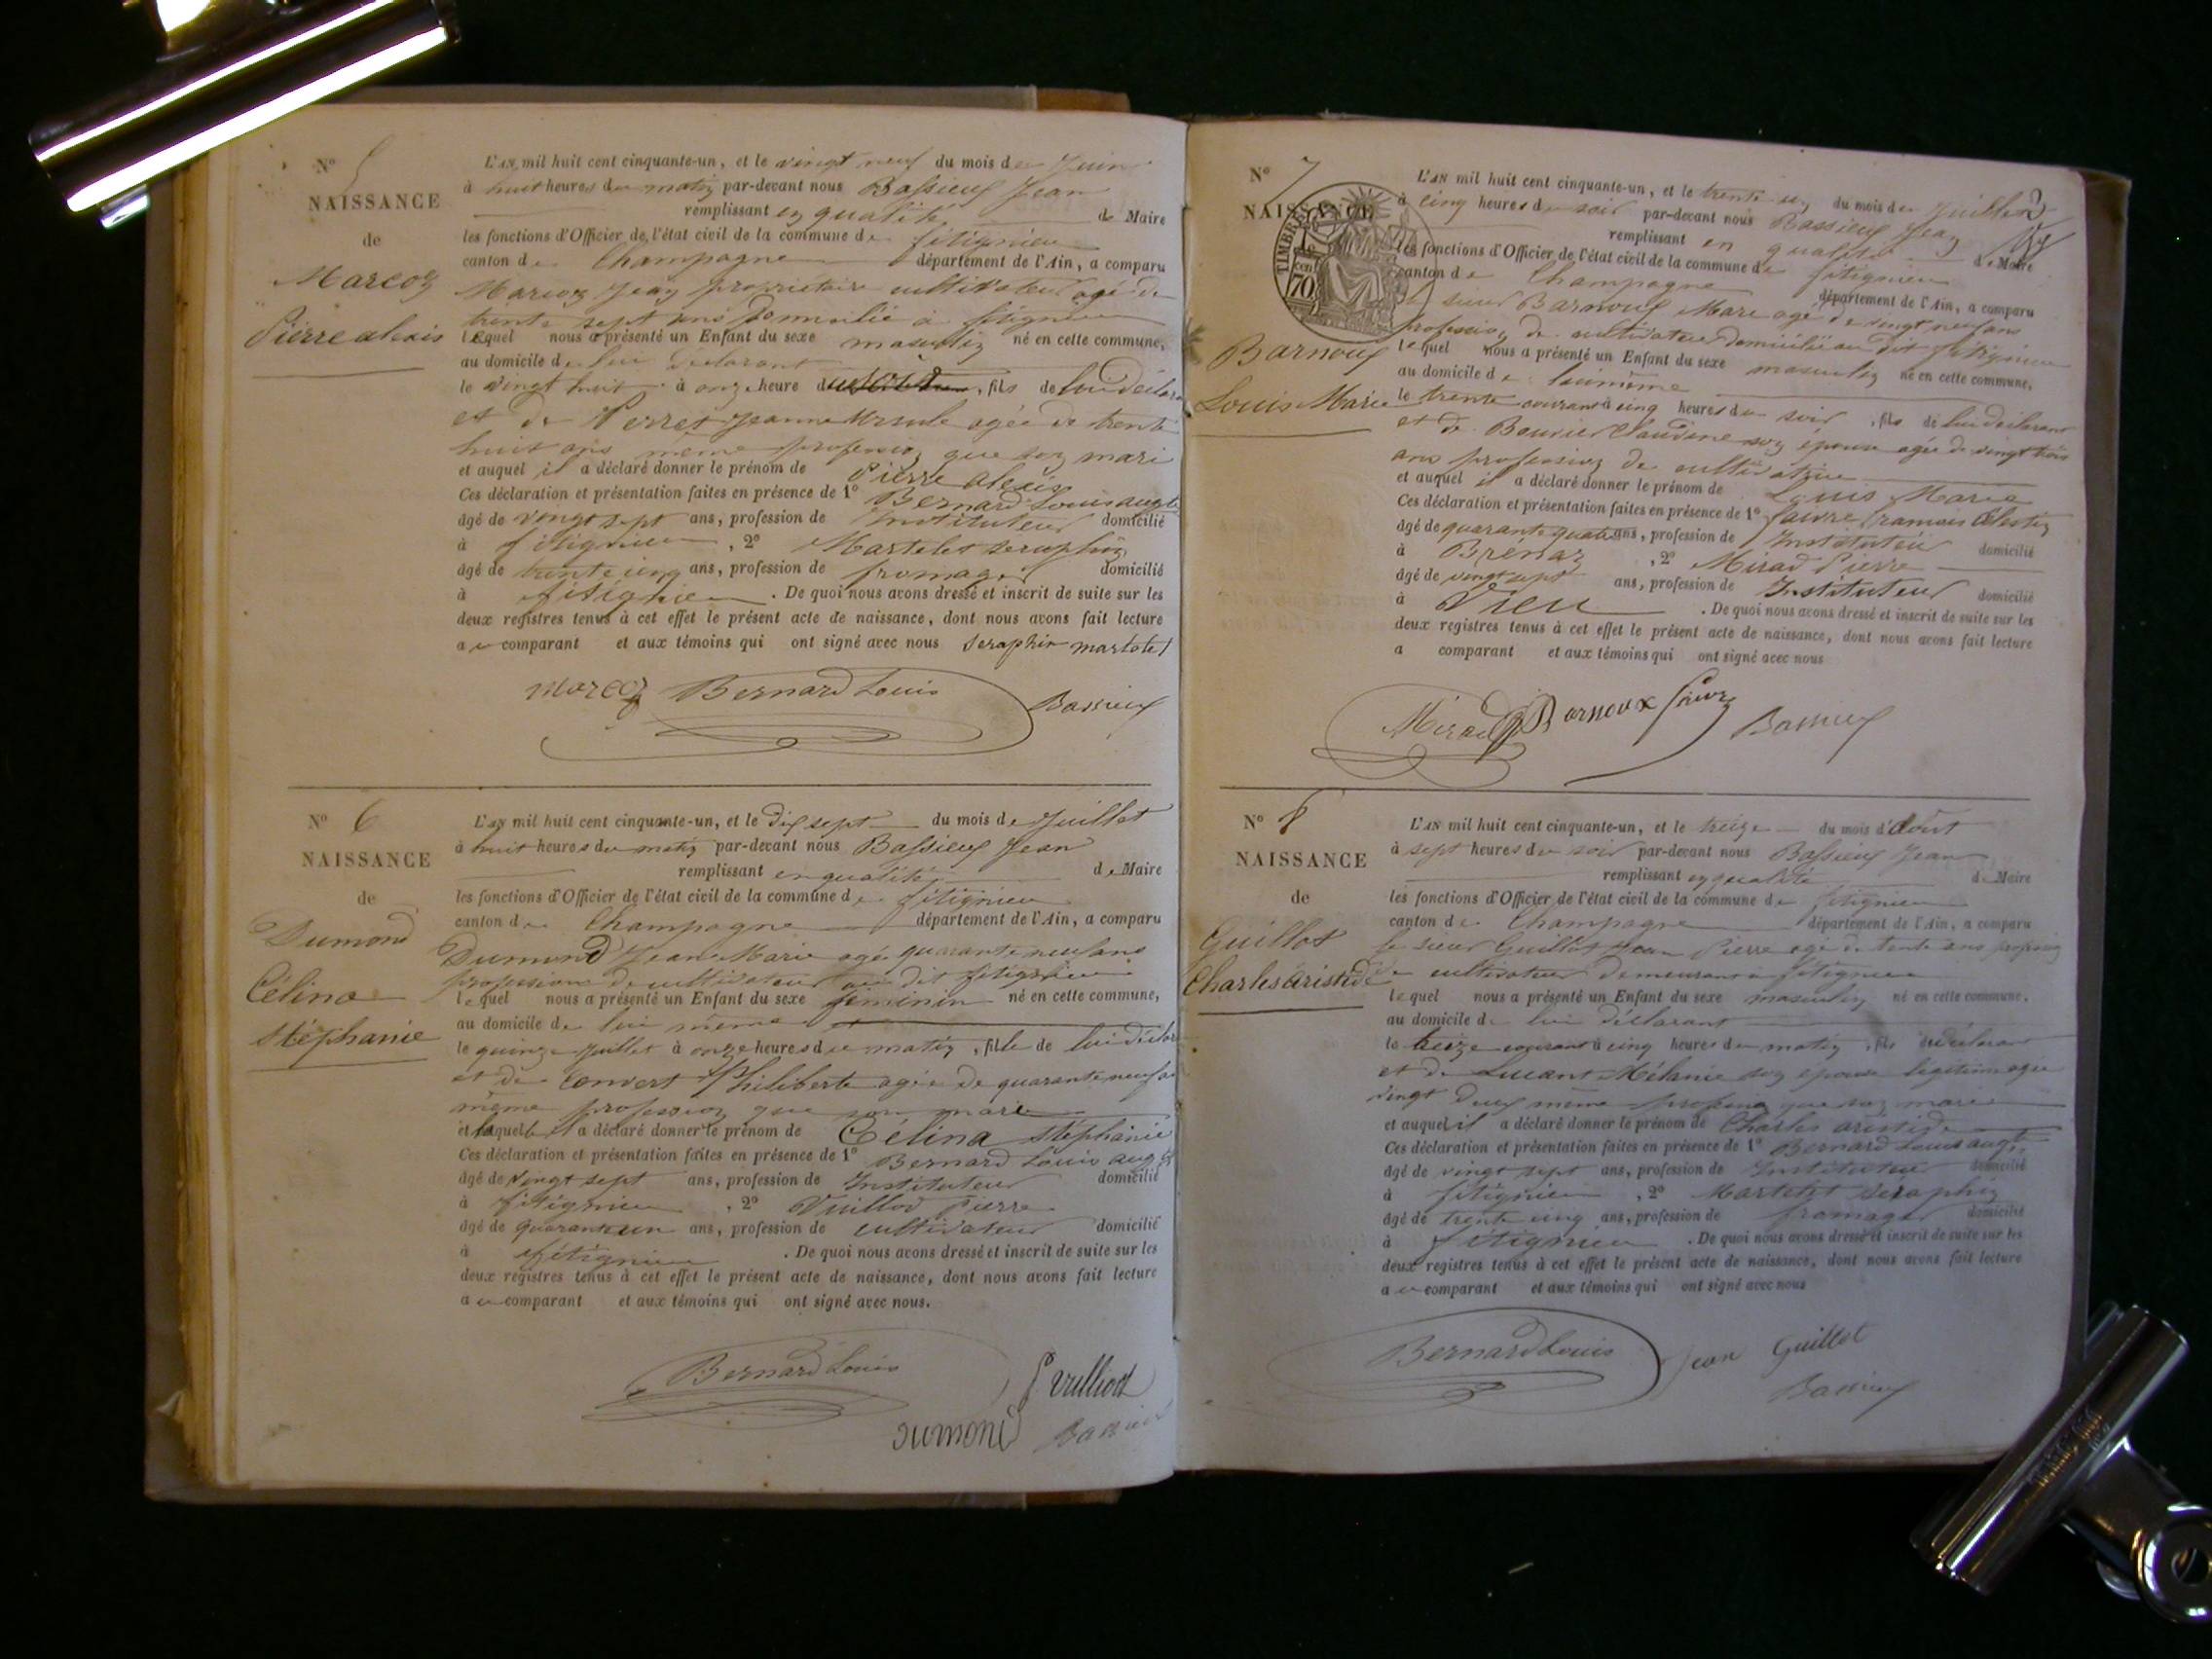 N° 5
NAISSANCE
de
Marcoz
Pierre alexis
L'AN mil huit cent cinquante-un, et le vingt neuf du mois de Juin
à huit heures du matin par-devant nous Bassieux Jean
remplissant en qualité de Maire
les fonctions d'Officier de l'état civil de la commune de fitignieu
canton de Champagne département de l'Ain, a comparu
Marcoz Jean propriétaire cultivateur agé de
trente sept ans domicilié à fitignieu
lequel nous a présenté un Enfant du sexe masculin né en cette commune,
au domicile de lui Déclarant
le vingt huit à onze heure du soir, fils de lui Déclara
et de Perret Jeanne Ursule agée de trente
huit ans même profession que son mari
et auquel il a déclaré donner le prénom de Pierre alexis
Ces déclaration et présentation faites en présence de 1° Bernard Louis augte
âgé de vingt sept ans, profession de Instituteur domicilié
à fitignieu, 2° Martelet seraphin
âgé de trente cinq ans, profession de fromager domicilié
à fitignieu. De quoi nous avons dressé et inscrit de suite sur les
deux registres tenus à cet effet le présent acte de naissance, dont nous avons fait lecture
au comparant et aux témoins qui ont signé avec nous Seraphin martelet
marcoz Bernard Louis Bassieux
N° 6
NAISSANCE
de
Dumond
Célina
Stéphanie
L'AN mil huit cent cinquante-un, et le Dix sept du mois de Juillet
à huit heures du matin par-devant nous Bassieux Jean
remplissant en qualité de Maire
les fonctions d'Officier de l'état civil de la commune de fitignieu
canton de Champagne département de l'Ain, a comparu
Dumond Jean Marie agé quarante neuf ans
profession de cultivateur au dit fitignieu
lequel nous a présenté un Enfant du sexe féminin né en cette commune,
au domicile de lui même
le quinze Juillet à onze heures du matin, fille de lui déclar
et de Convert Philiberte agée de quarante neuf a
même profession que son mari
et laquelle il a déclaré donner le prénom de Célina stéphanie
Ces déclaration et présentation faites en présence de 1° Bernard Louis augte
âgé de vingt sept ans, profession de Instituteur domicilié
à fitignieu, 2° Vuillod Pierre
âgé de quarante un ans, profession de cultivateur domicilié
à fitignieu. De quoi nous avons dressé et inscrit de suite sur les
deux registres tenus à cet effet le présent acte de naissance, dont nous avons fait lecture
au comparant et aux témoins qui ont signé avec nous.
Bernard Louis P vulliod
Dumond Bassieux
N° 7
NAISSANCE
TIMBRE
70
Barnoux
Louis Marie
L'AN mil huit cent cinquante-un, et le trente un du mois de Juillet
à cinq heures du soir par-devant nous Bassieux Jean
remplissant en qualité de Maire
les fonctions d'Officier de l'état civil de la commune de fitignieu
canton de Champagne département de l'Ain, a comparu
le sieur Barnoux Marc agé de vingt neuf ans
profession de cultivateur domicilié au dit fitignieu
lequel nous a présenté un Enfant du sexe masculin né en cette commune,
au domicile de lui même
le trente courant à cinq heures du soir, fils de lui déclarant
et de Beurier Claudine son épouse agée de vingt trois
ans profession de cultivatrice
et auquel il a déclaré donner le prénom de Louis Marie
Ces déclaration et présentation faites en présence de 1° faivre francois Célestin
âgé de quarante quatre ans, profession de Instituteur domicilié
à Brénaz, 2° Mirad Pierre
âgé de vingt sept ans, profession de Instituteur domicilié
à Vieu. De quoi nous avons dressé et inscrit de suite sur les
deux registres tenus à cet effet le présent acte de naissance, dont nous avons fait lecture
a comparant et aux témoins qui ont signé avec nous
Mirad Barnoux faivre Bassieux
N° 8
NAISSANCE
de
Guillot
Charles aristide
L'AN mil huit cent cinquante-un, et le treize du mois d'Aout
à sept heures du soir par-devant nous Bassieux Jean
remplissant en qualité de Maire
les fonctions d'Officier de l'état civil de la commune de fitignieu
canton de Champagne département de l'Ain, a comparu
le sieur Guillot Jean Pierre agé de trente ans profession
de cultivateur demeurant à fitignieu
lequel nous a présenté un Enfant du sexe masculin né en cette commune,
au domicile de lui déclarant
le treize courant à cinq heures du matin, fils de déclarant
et de Lucant Mélanie son épouse légitime agée
vingt deux même profession que son mari
et auquel il a déclaré donner le prénom de Charles aristide
Ces déclaration et présentation faites en présence de 1° Bernard Louis augte
âgé de vingt sept ans, profession de Instituteur domicilié
à fitignieu, 2° Martelet séraphin
âgé de trente cinq ans, profession de fromager domicilié
à fitignieu. De quoi nous avons dressé et inscrit de suite sur les
deux registres tenus à cet effet le présent acte de naissance, dont nous avons fait lecture
au comparant et aux témoins qui ont signé avec nous
Bernard Louis Jean Guillot
Bassieux